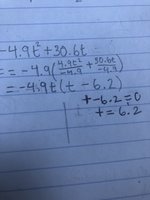 -4.9t² + 30.6t
= -4.9(4.9t²/-4.9 + 30.6t/-4.9)
= -4.9t(t - 6.2)
t - 6.2 = 0
t = 6.2